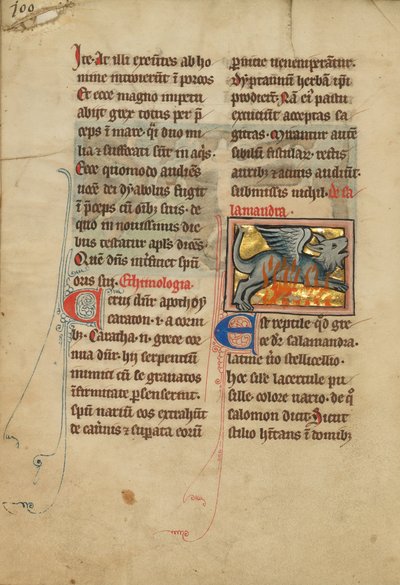 100
Ite· At illi exeuntes ab ho
mine introierūt ī porcos
Et ecce magno impetu
abijt grex totus per p̄
ceps ī mare· q̄ duo mi
lia ⁊ suffocati sūt in aq̄s·
Ecce quomodo audiēs
uocē dei dyabolus fugit
ī p̄ceps cū oībȝ suis· de
quo in nouissimis die
bus testatur apl̄s dicēs·
Quē dn̄s īt̄ficiet sp̄u
oris sui· Ethimologia
Cerui dn̄r apo thōy
caraton· i· a corni
bȝ· Caratha· n̄ grece cor
nua dn̄r· hii serpentū
inimici cū se grauatos
īfirmitate p̄senserint·
sp̄u nariū eos extrahūt
de cau̾nis ⁊ sup̄ata eorū
p̄nicie ueneni
dyptannū herbā ip̄i
prodierūt· Nā ei pastu
excutiunt acceptas sa
gittas· Mirantur autē
sibilū fistular̄· rectis
auribȝ ⁊ acutis audiūt·
submissis nichil· de sa
lamandra·
Est reptile q̄d gre
ce dr̄· salamandra·
latine ūo stellicellio·
hoc sile lacertule pu
sille· colore uario· de q̄
salomon dicit· Sicut
stilio hītans ī domibȝ